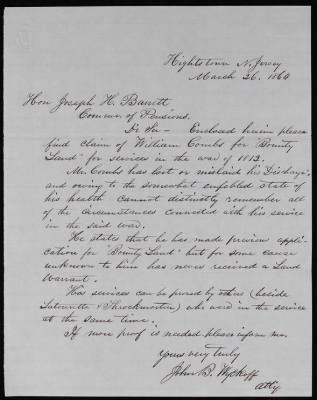 Hightstown N. Jersey
March 26. 1864
Hon Joseph H. Barrett
Commr. of Pensions.
Dr Sir - Enclosed herein please
find claim of William Combs for "Bounty
Land" for services in the war of 1812.
Mr. Combs has lost or mislaid his Dischage
and owing to the somewhat enfebled state of
his health cannot distinctly remember all
of the circumstances connected with his service
in the said war.
He states that he has made previous appli-
cation for "Bounty Land" but for some cause
unknown to him has never received a Land
Warrant.
His services can be proved by others (beside
Satourette & Shuckworter) who were in the service
at the same time.
If more proof is needed please inform me.
Yours very truly
John B. Wyckoff
Atty